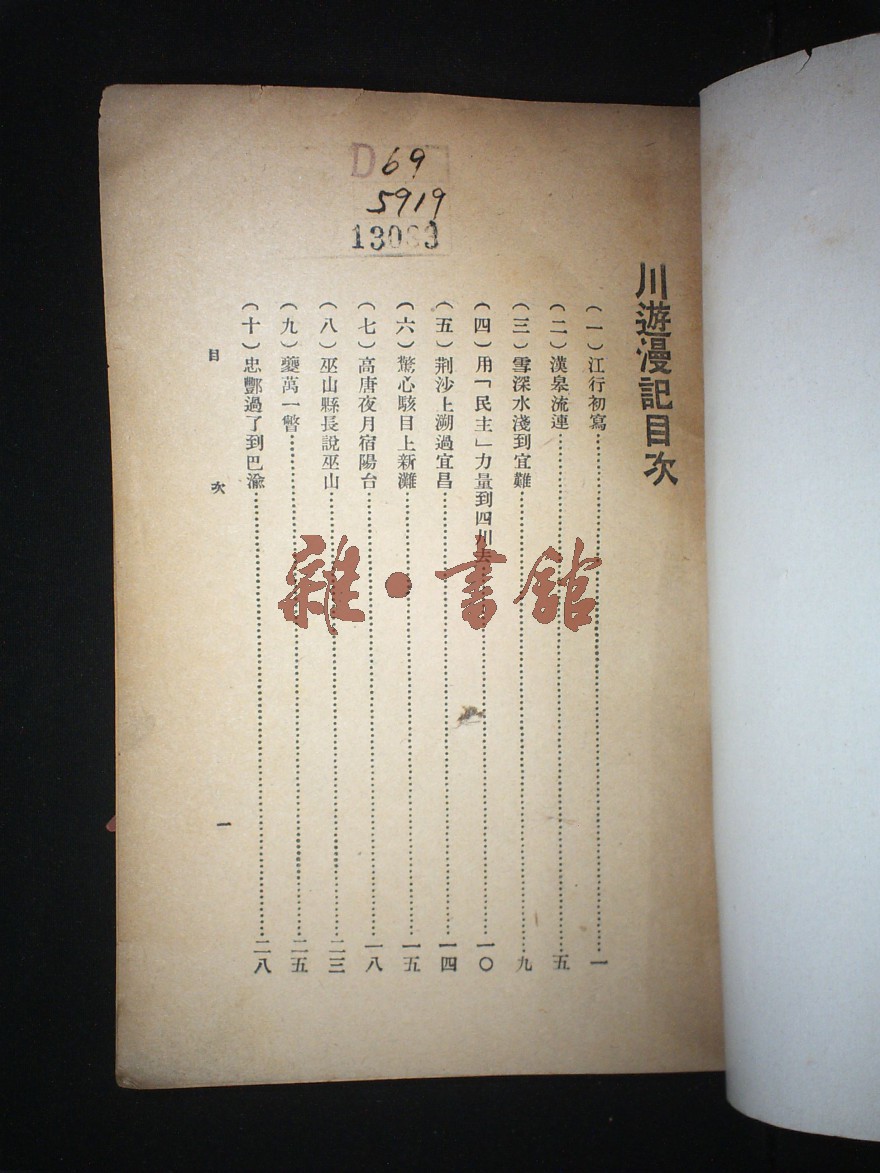 D69
5919
130
川遊漫記目次
(一)江行初寫…………一
(二)漢皋流連…………五
(三)雪深水淺到宜難…………九
(四)用「民主」力量到四川去…………一〇
(五)荆沙上溯過宜昌…………一四
(六)驚心駭目上新灘…………一五
(七)高唐夜月宿陽台…………一八
(八)巫山縣長說巫山…………二三
(九)夔萬一瞥…………二五
(十)忠酆過了到巴渝…………二八
目次 一
雜·書館